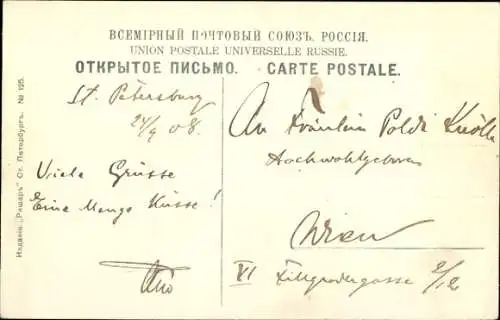 ВСЕМІРНЫЙ ПОЧТОВЫЙ СОЮЗЪ. РОССІЯ.
UNION POSTALE UNIVERSELLE RUSSIE.
ОТКРЫТОЕ ПИСЬМО. - CARTE POSTALE.
St. Petersburg
24/9 08.
Viele Grüsse
Eine Menge Küsse!
An Fräulein Poldi
Hochwohlgeboren
Wien
VI Fillgradergasse 2/12
Изданіе „Ришаръ" Ст. Петербургъ. № 125.